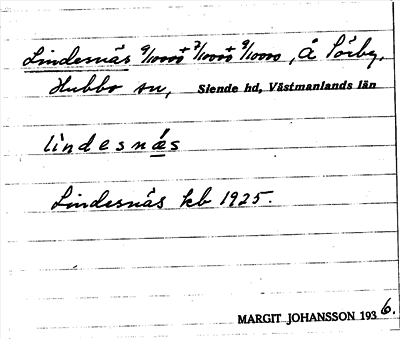 Lindesnäs 9/10000 + 3/10000 + 9/10000, Å Sörby,
Hubbo sn, Siende hd, Västmanlands län
lìndesnæ̲s
Lindesnäs kb 1925.
MARGIT JOHANSSON 1936.